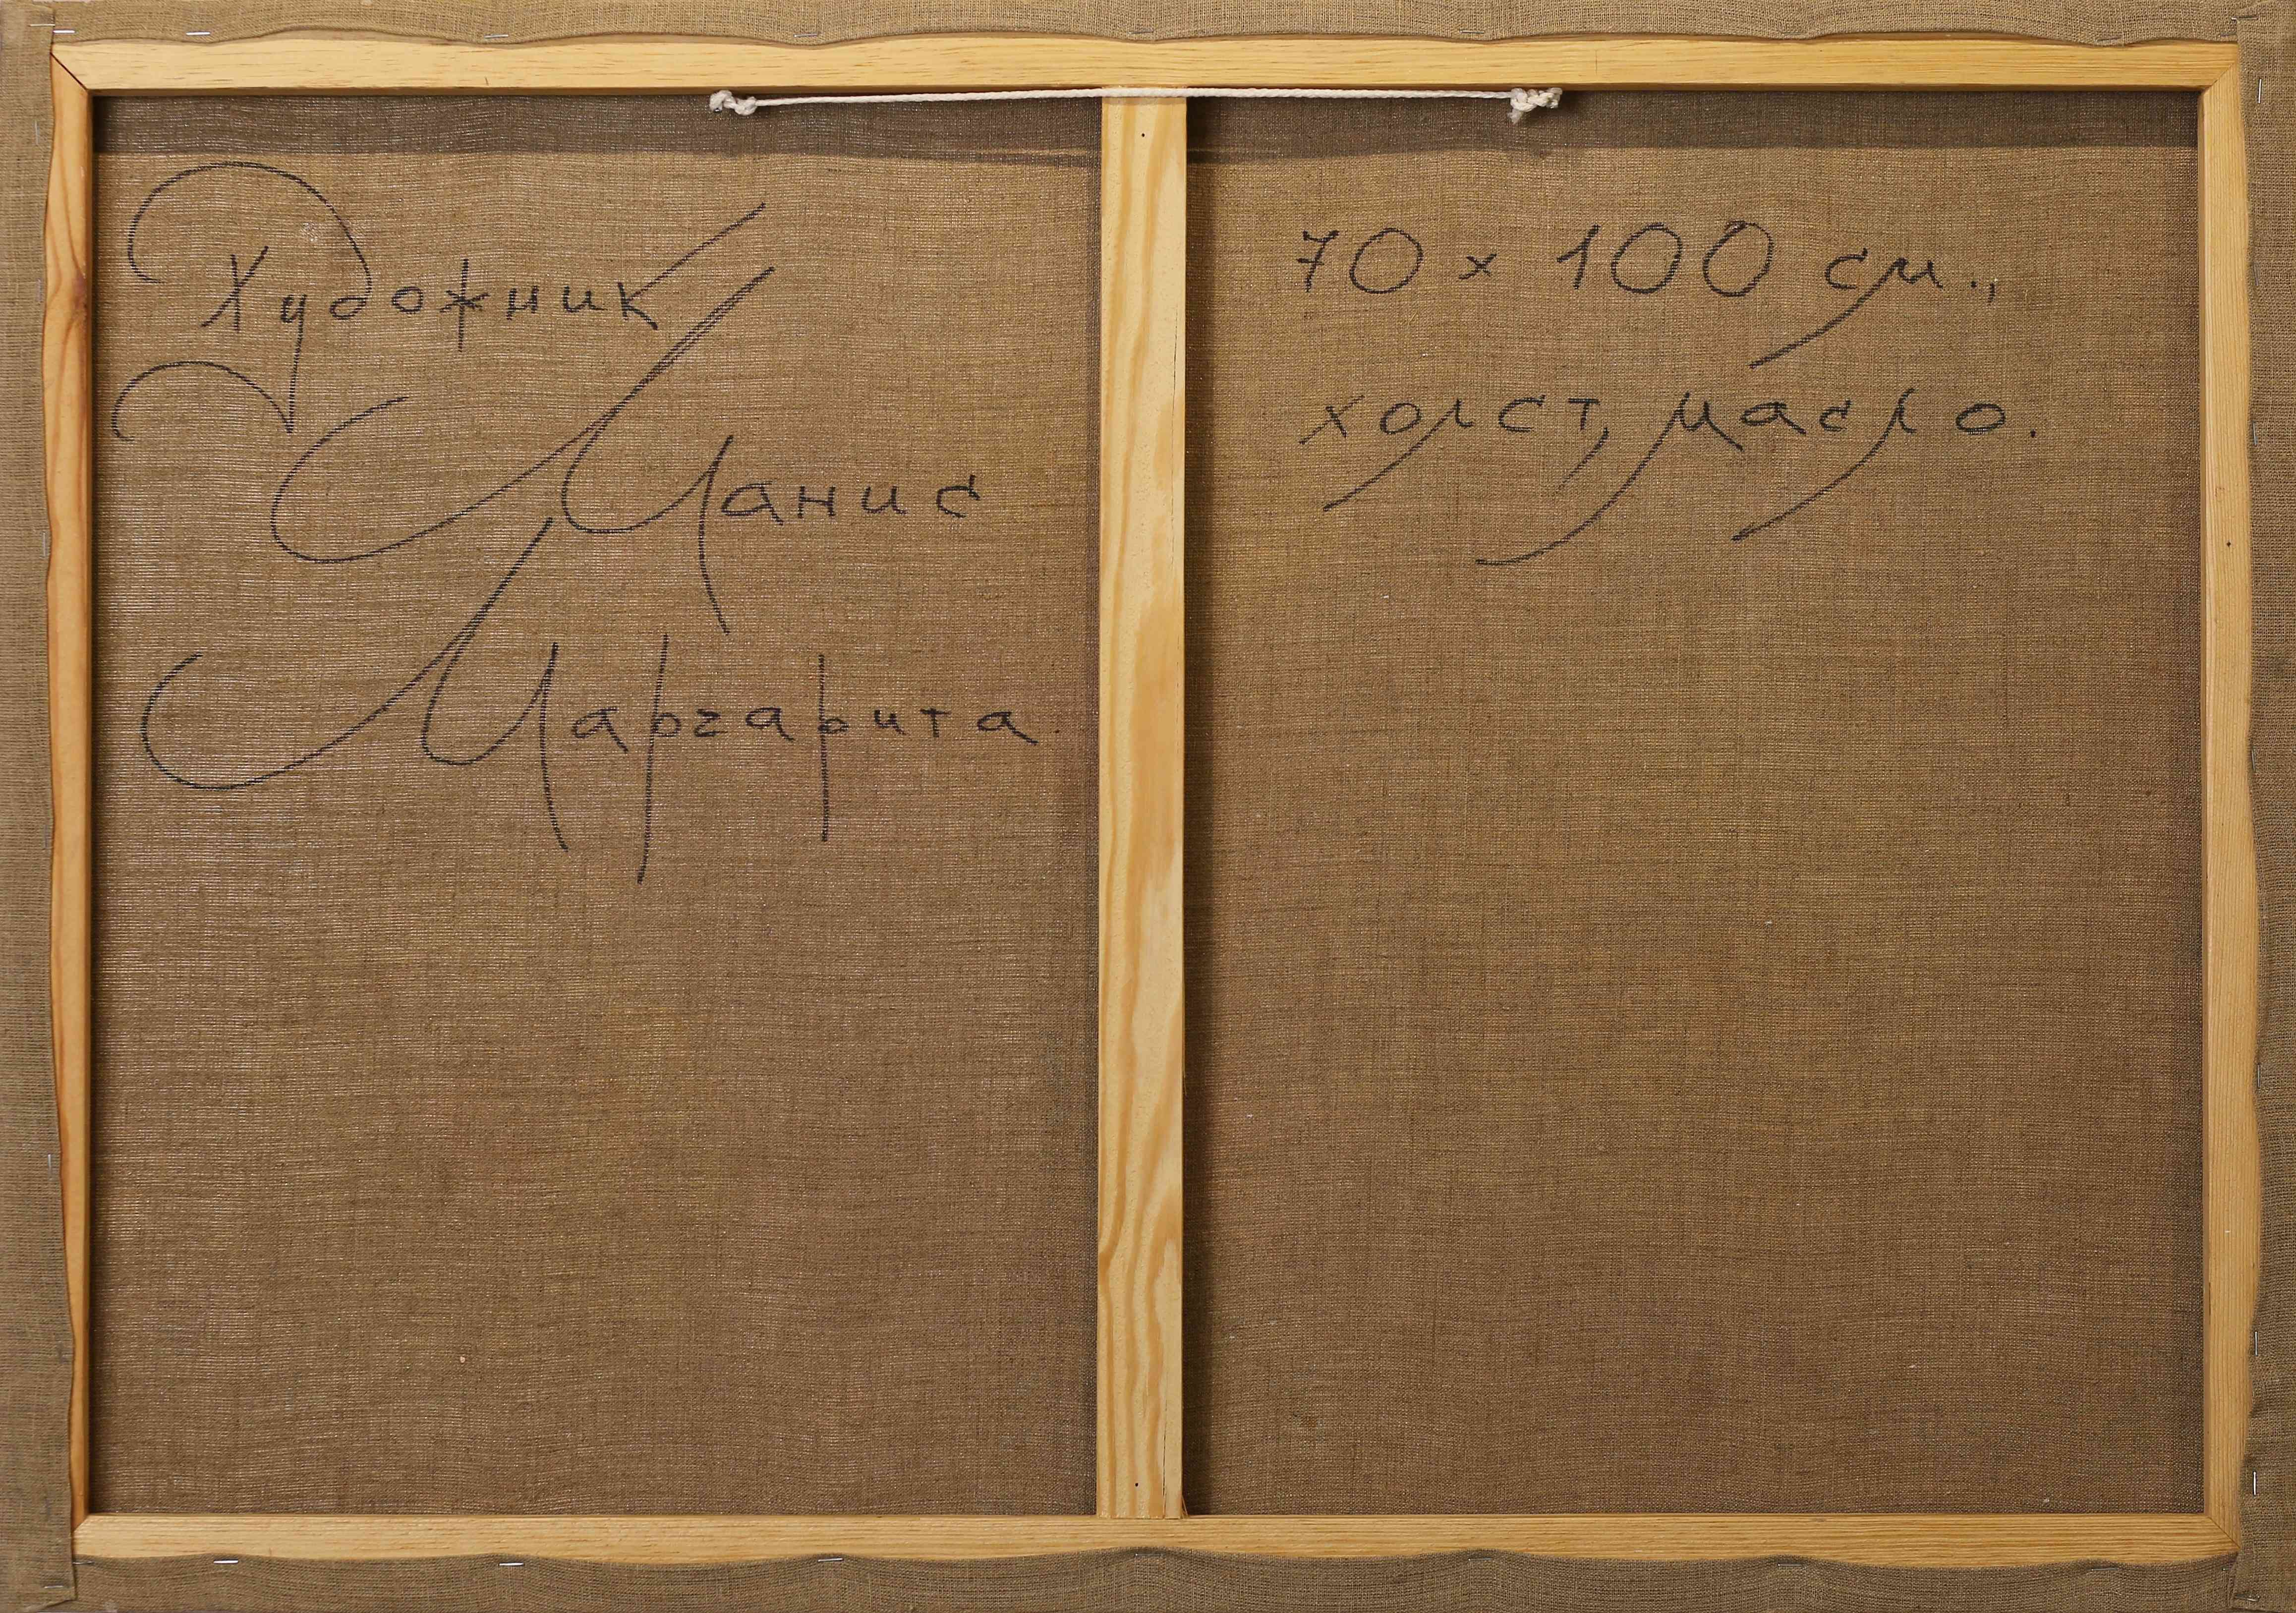 Художник
Манис
Маргарита
70 x 100 см.,
холст, масло.